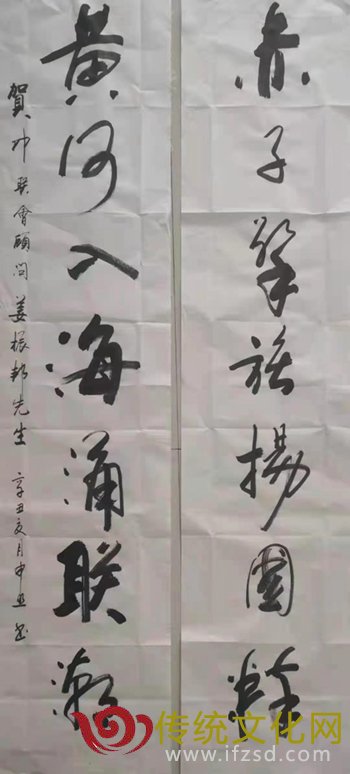 赤子擎旗揚國粹
黄河入海涌联潮
賀中联會顧问姜振邦先生 辛丑 月 书
传统文化网
www.ifzsd.com